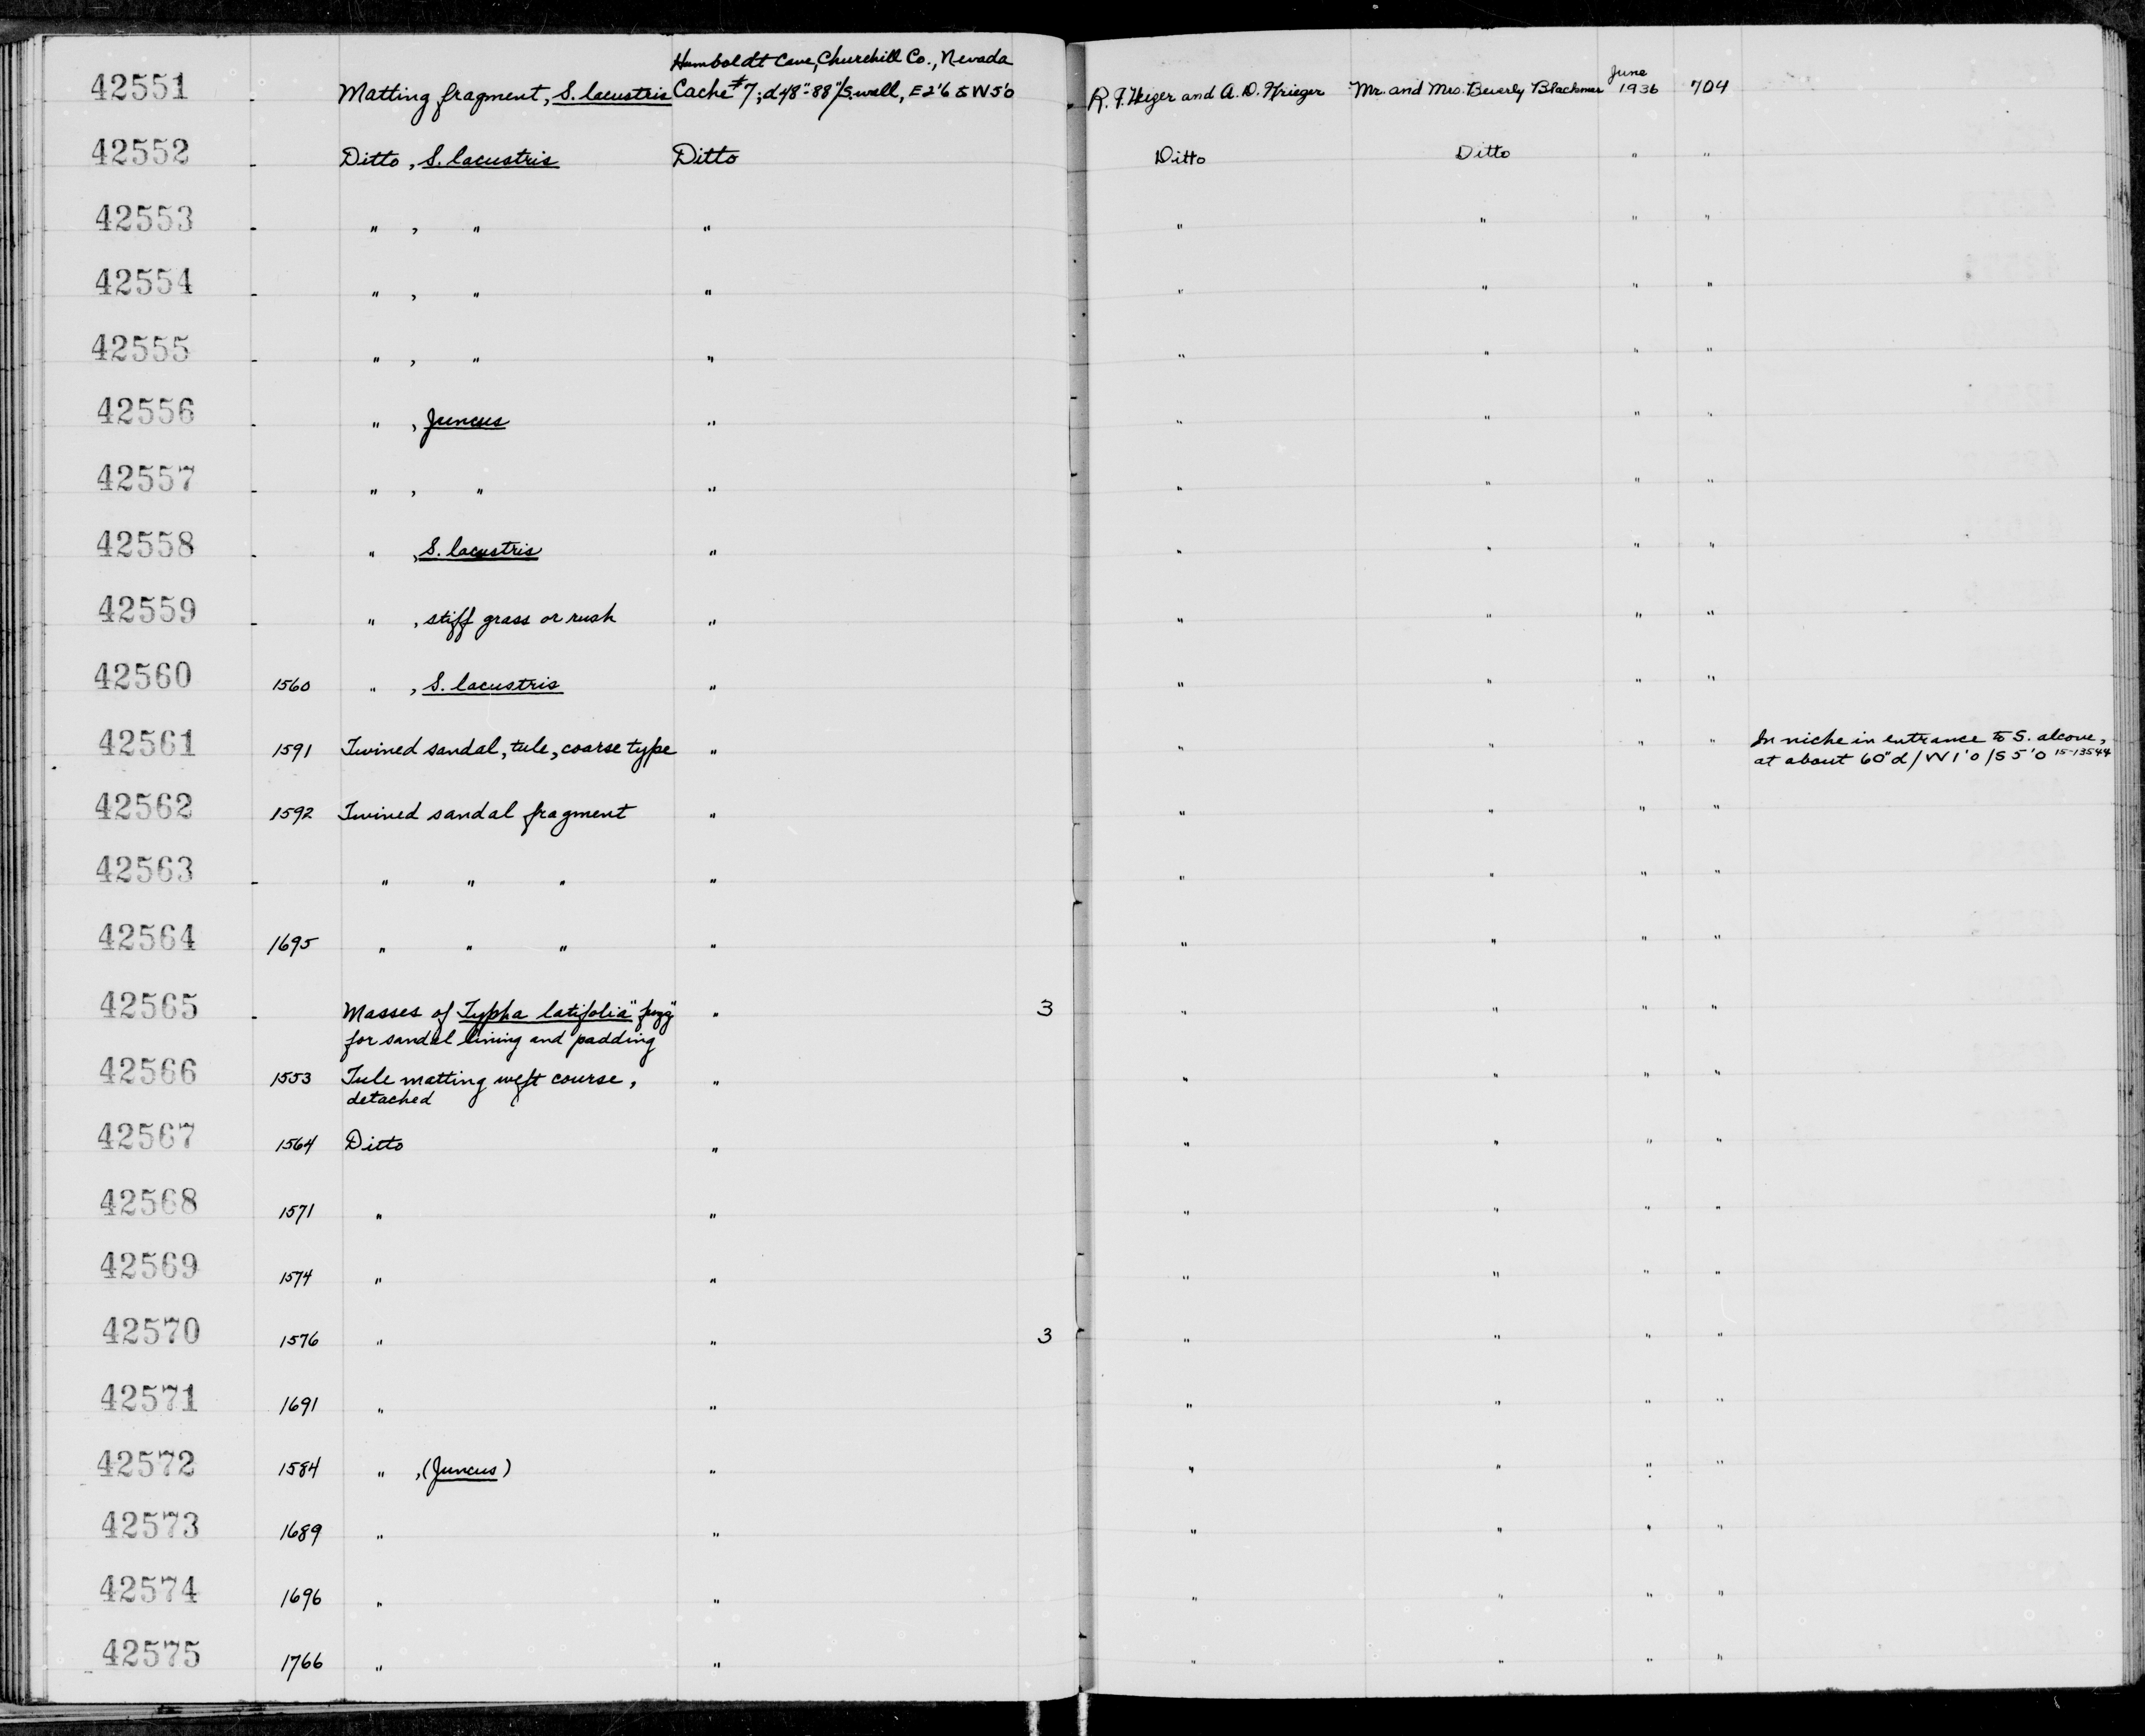 Humboldt Cave, Churchill Co., Nevada
42551 - Matting fragment, S. lacustris Cache #7; d48"-88"/S. wall, E2'6 & W5'0 R. F. Heizer and A. D. Krieger Mr. and Mrs. Beverly Blackmer June 1936 704
42552 - Ditto, S. lacustris Ditto Ditto Ditto " "
42553 - " , " " " " " "
42554 - " , " " " " " "
42555 - " , " " " " " "
42556 - " , Juncus " " " " "
42557 - " , " " " " " "
42558 - " , S. lacustris " " " " "
42559 - " , stiff grass or rush " " " " "
42560 1560 " , S. lacustris " " " " "
42561 1591 Twined sandal, tule, coarse type " " " " " In niche in entrance to S. alcove,
at about 60" d/W1'0/S5'0 15-13544
42562 1592 Twined sandal fragment " " " " "
42563 - " " " " " " " "
42564 1695 " " " " " " " "
42565 - Masses of Typha latifolia "fuzz" " 3 " " " "
for sandal lining and padding
42566 1553 Tule matting weft course, " " " " "
detached
42567 1564 Ditto " " " " "
42568 1571 " " " " " "
42569 1574 " " " " " "
42570 1576 " " 3 " " " "
42571 1691 " " " " " "
42572 1584 " , (Juncus) " " " " "
42573 1689 " " " " " "
42574 1696 " " " " " "
42575 1766 " " " " " "